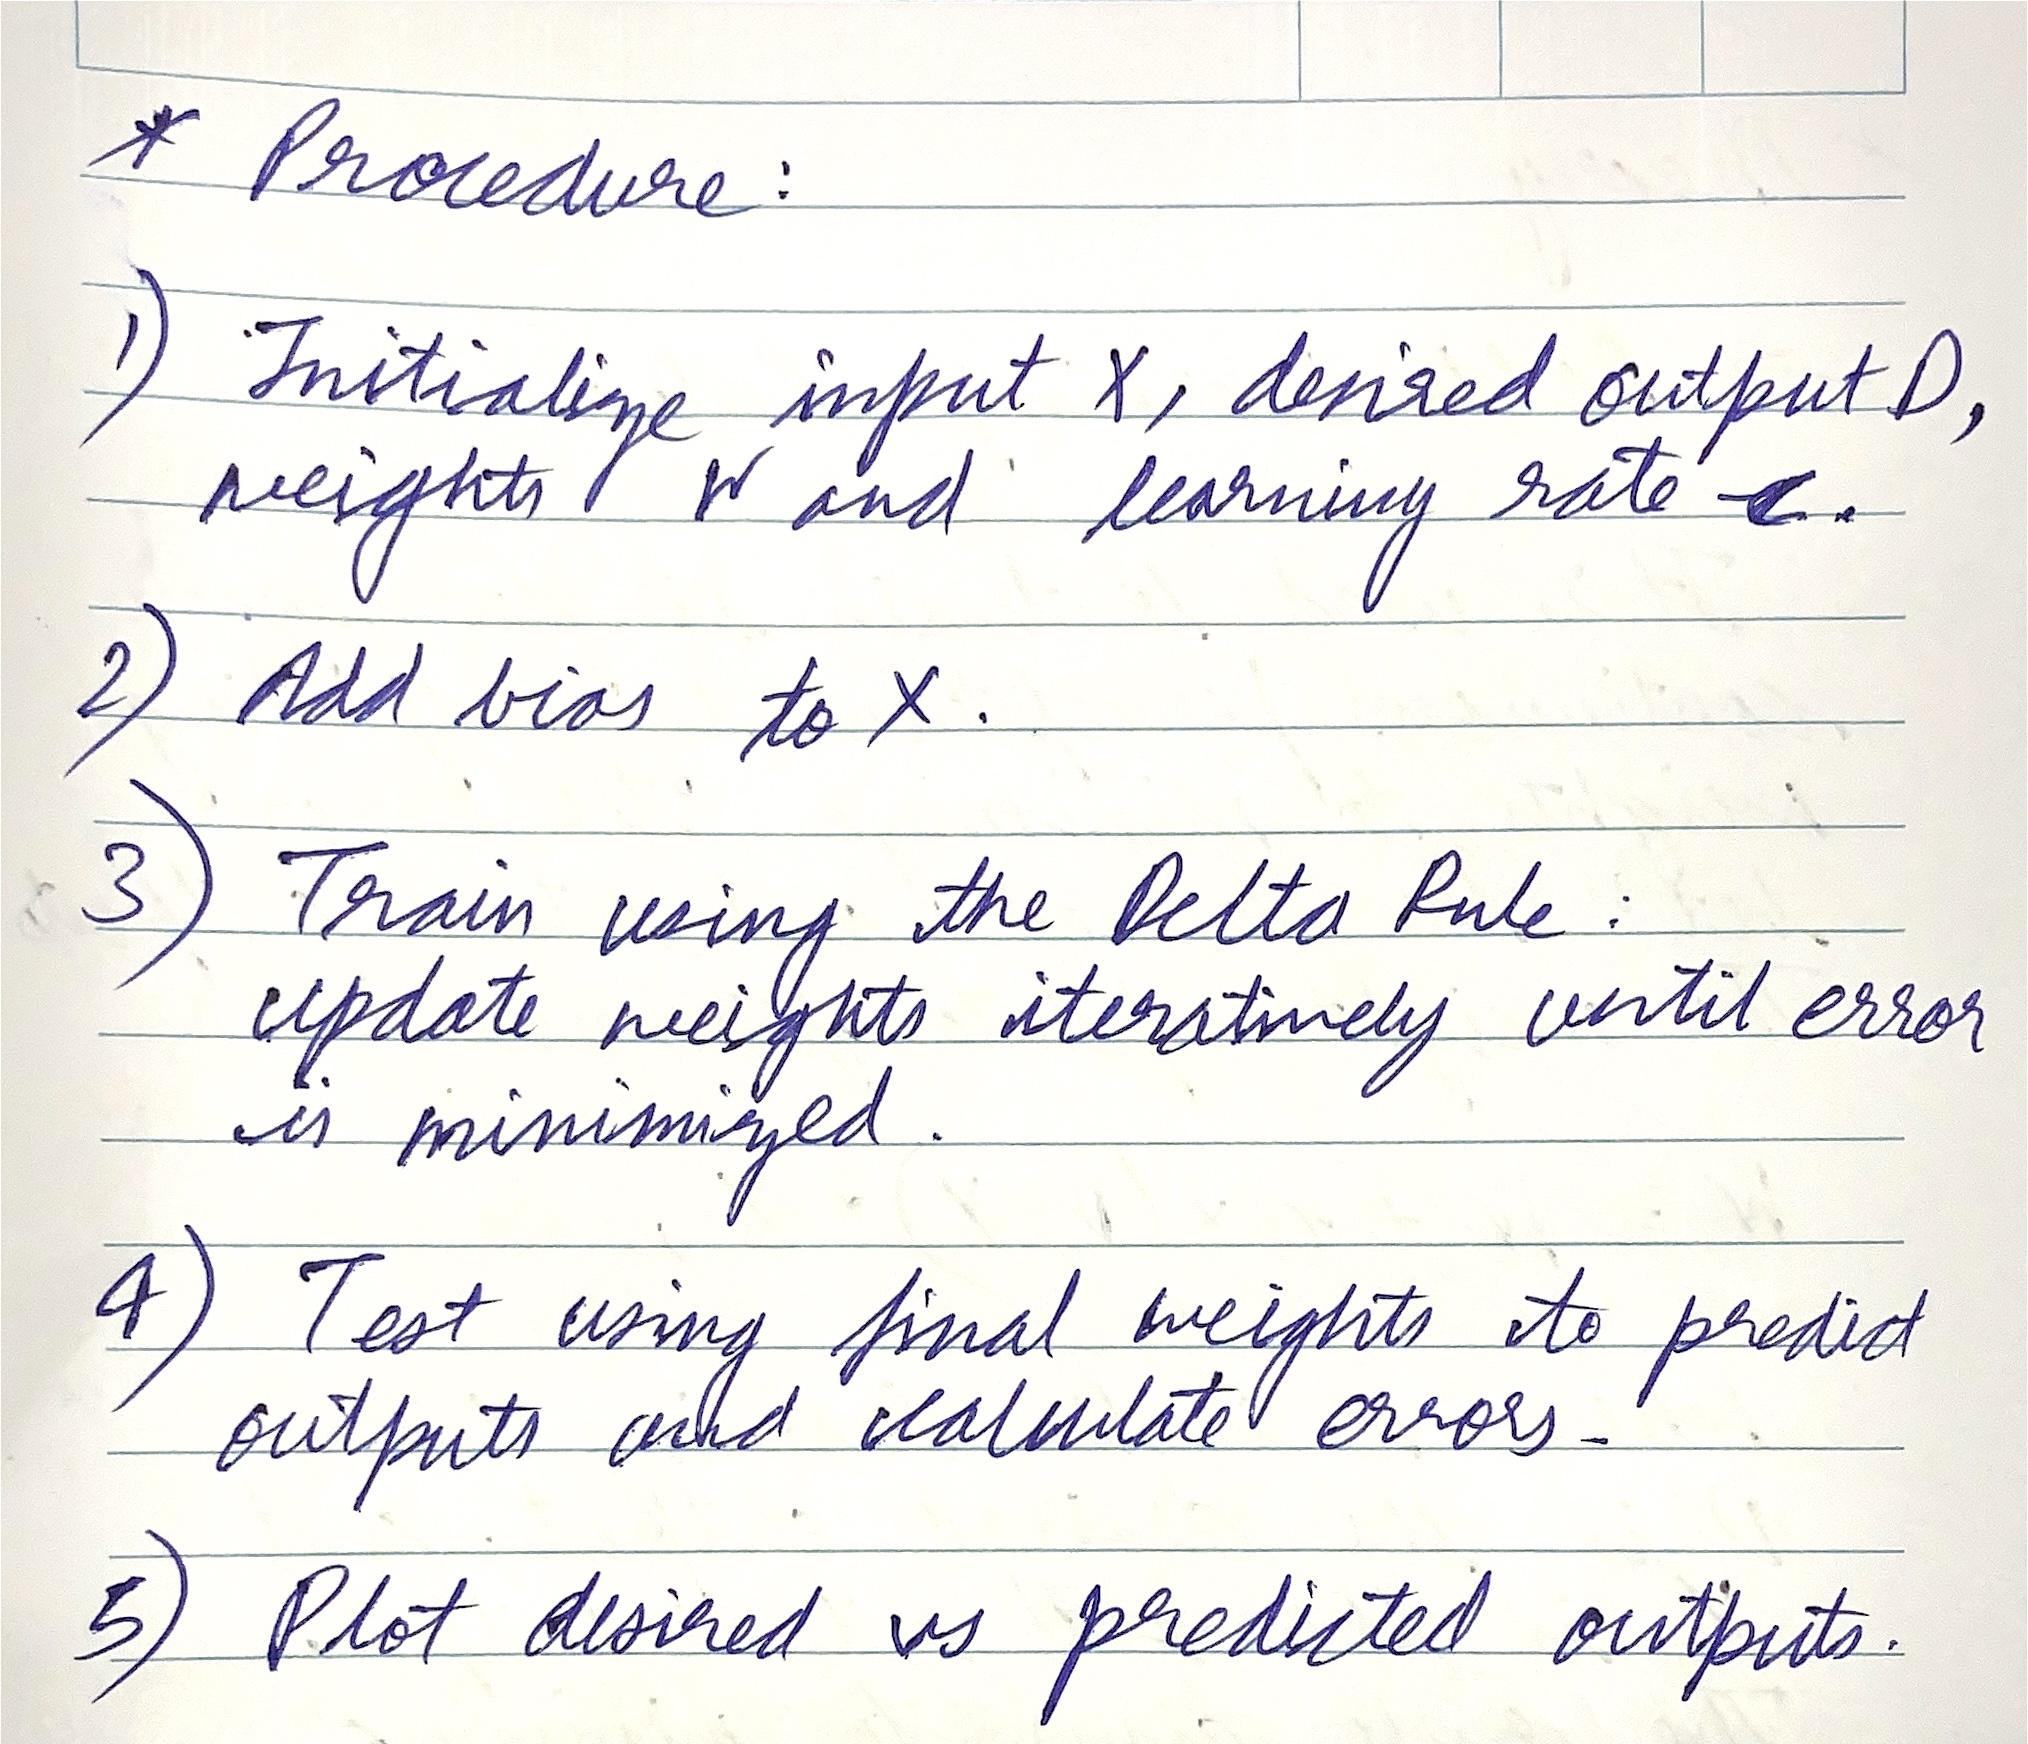 * Procedure:
1) Initialize input X, desired output D,
weights W and learning rate c.
2) Add bias to X.
3) Train using the Delta Rule:
update weights iteratively until error
is minimized.
4) Test using final weights to predict
outputs and calculate errors.
5) Plot desired vs predicted outputs.